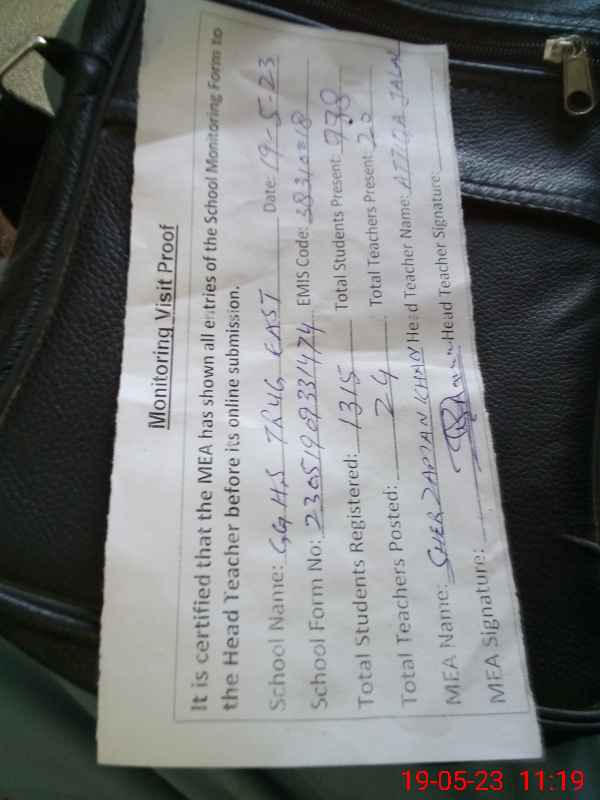 Monitoring Visit Proof
It is certified that the MEA has shown all entries of the School Monitoring Form to
the Head Teacher before its online submission.
School Name: G.G.H.S TRUG EAST Date: 19-5-23
School Form No: 23051909331474 EMIS Code: 38310018
Total Students Registered: 1315 Total Students Present: 938
Total Teachers Posted: 24 Total Teachers Present: 20
MEA Name: SHER ZAMAN KHAN Head Teacher Name: ATTIQA JALAL
MEA Signature: Head Teacher Signature:
19-05-23 11:19